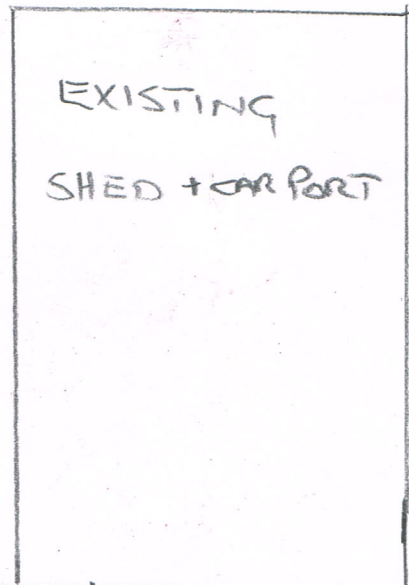 EXISTING
SHED + CAR PORT